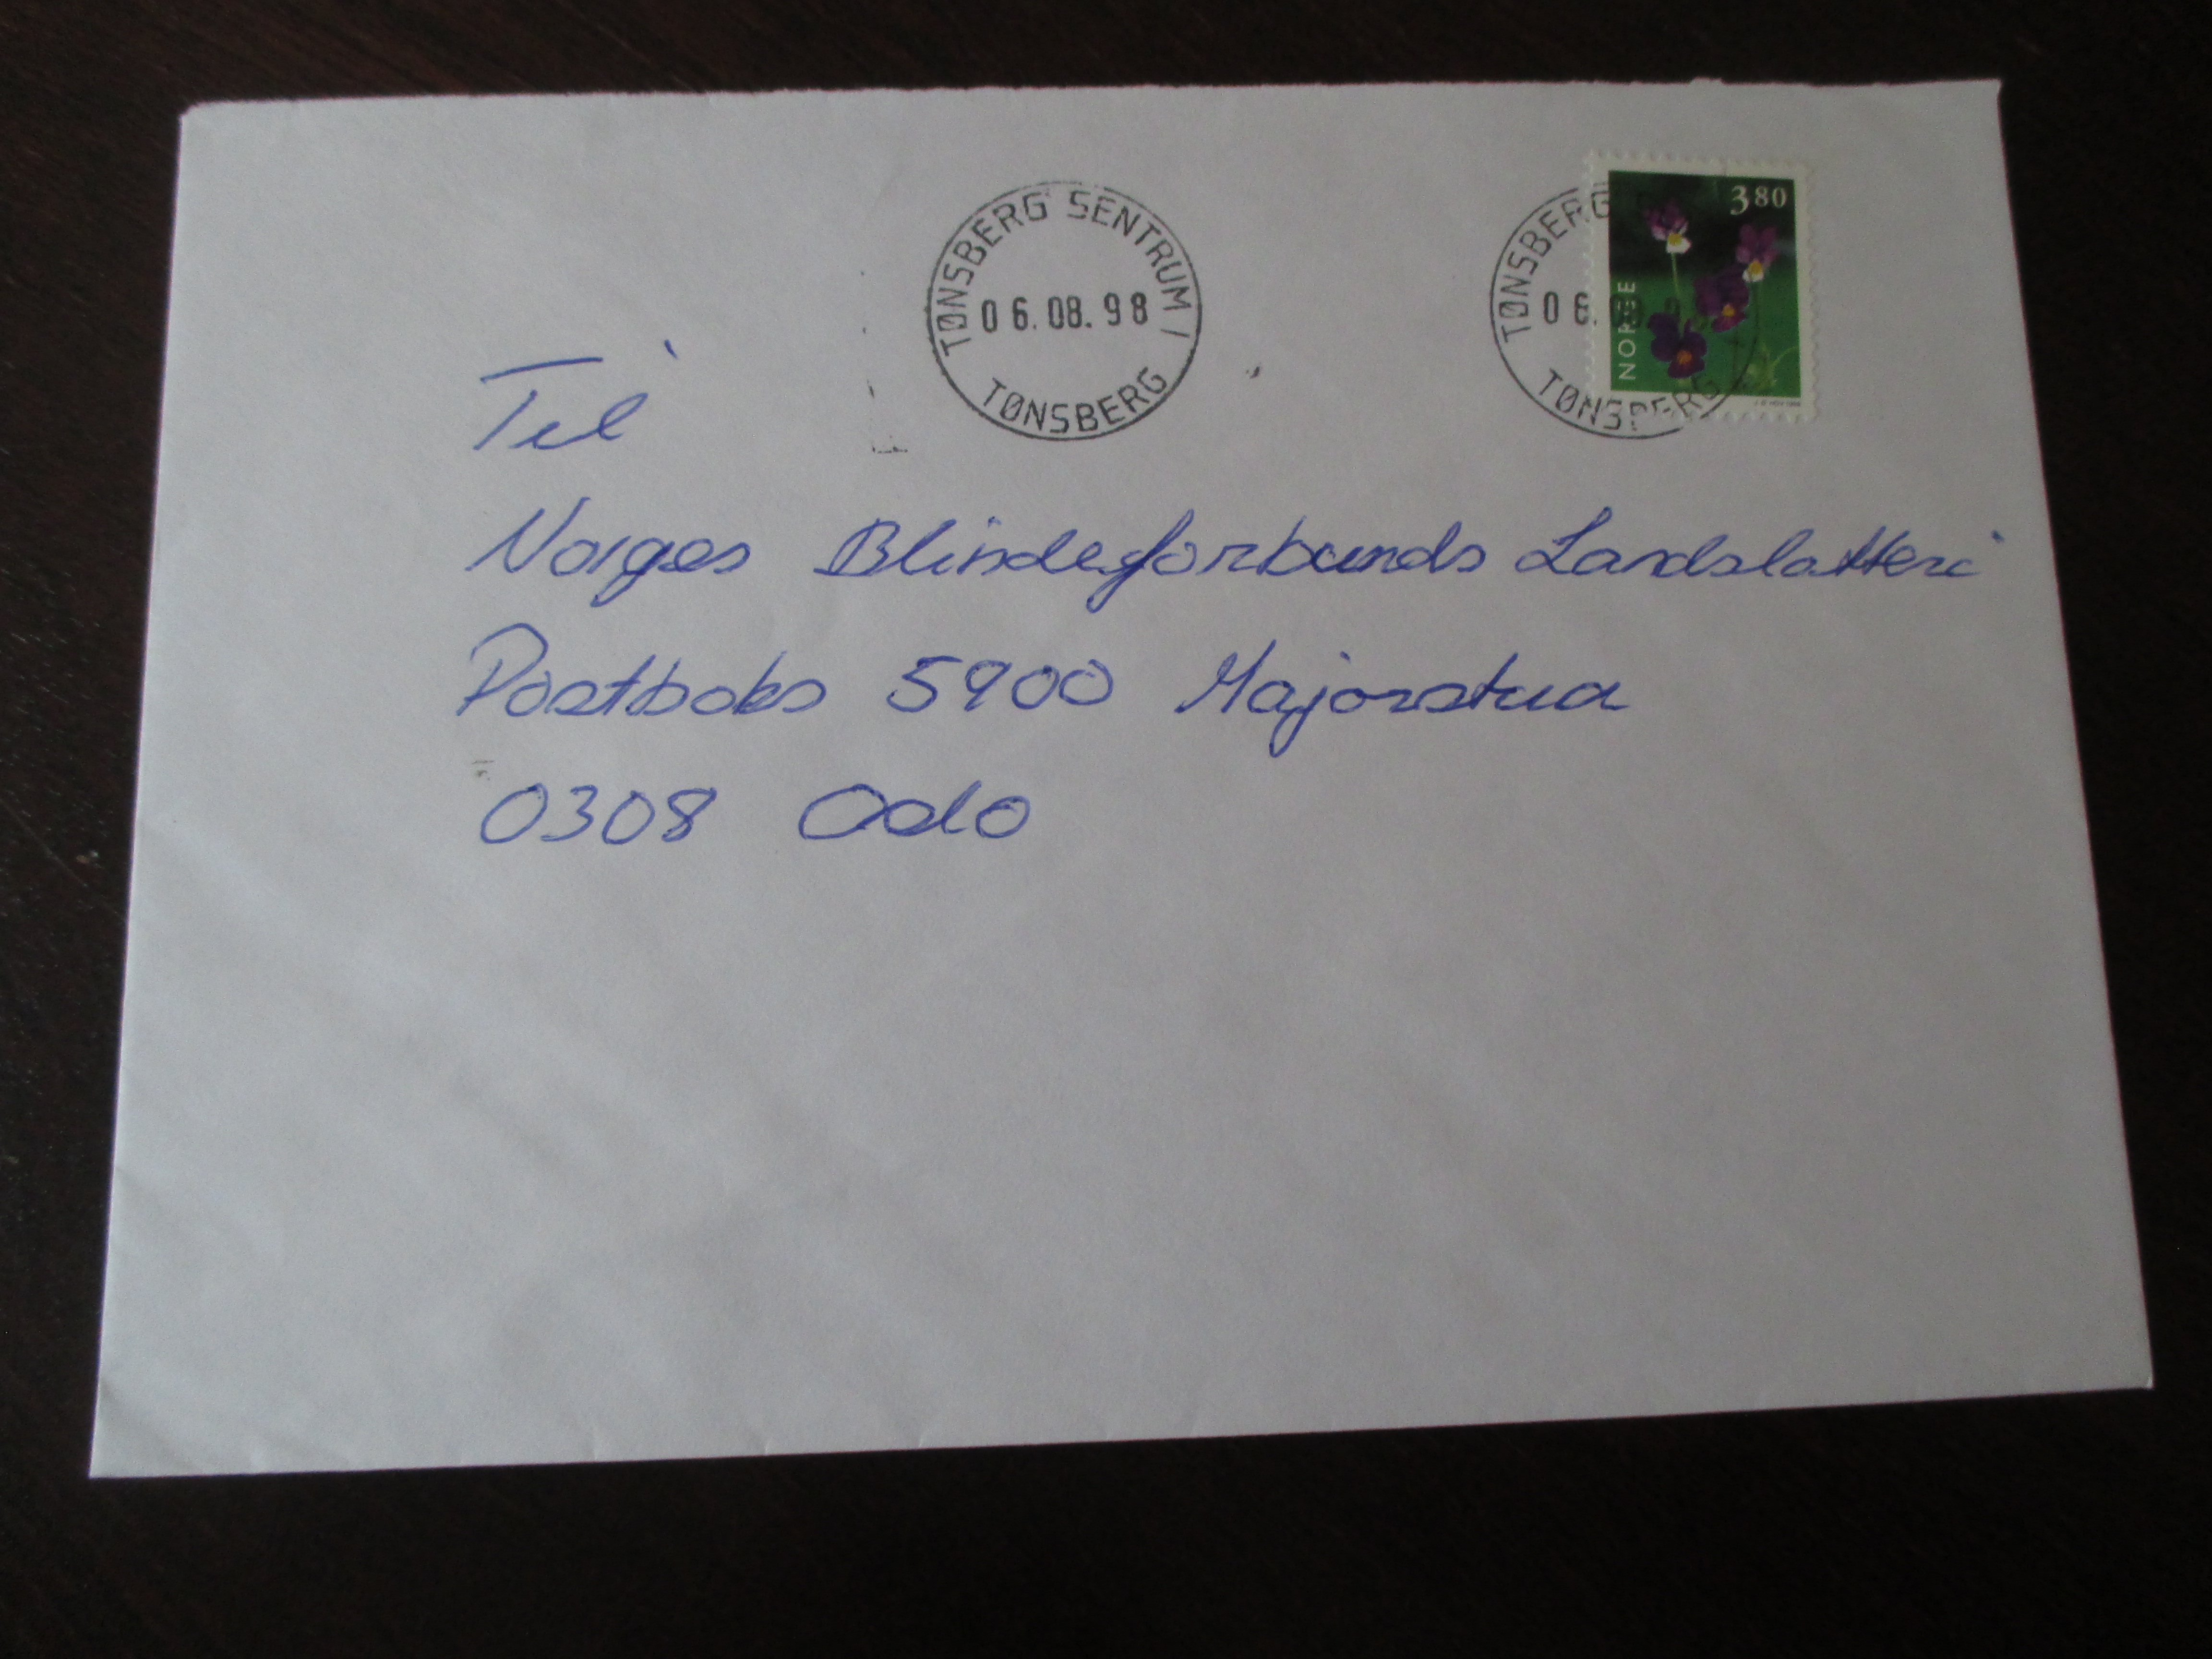 TØNSBERG SENTRUM 1
06.08.98
TØNSBERG
TØNSBERG
06.
TØNSBERG
380
NORGE
Til
Norges Blindeforbunds Landslotteri
Postboks 5900 Majorstua
0308 Oslo